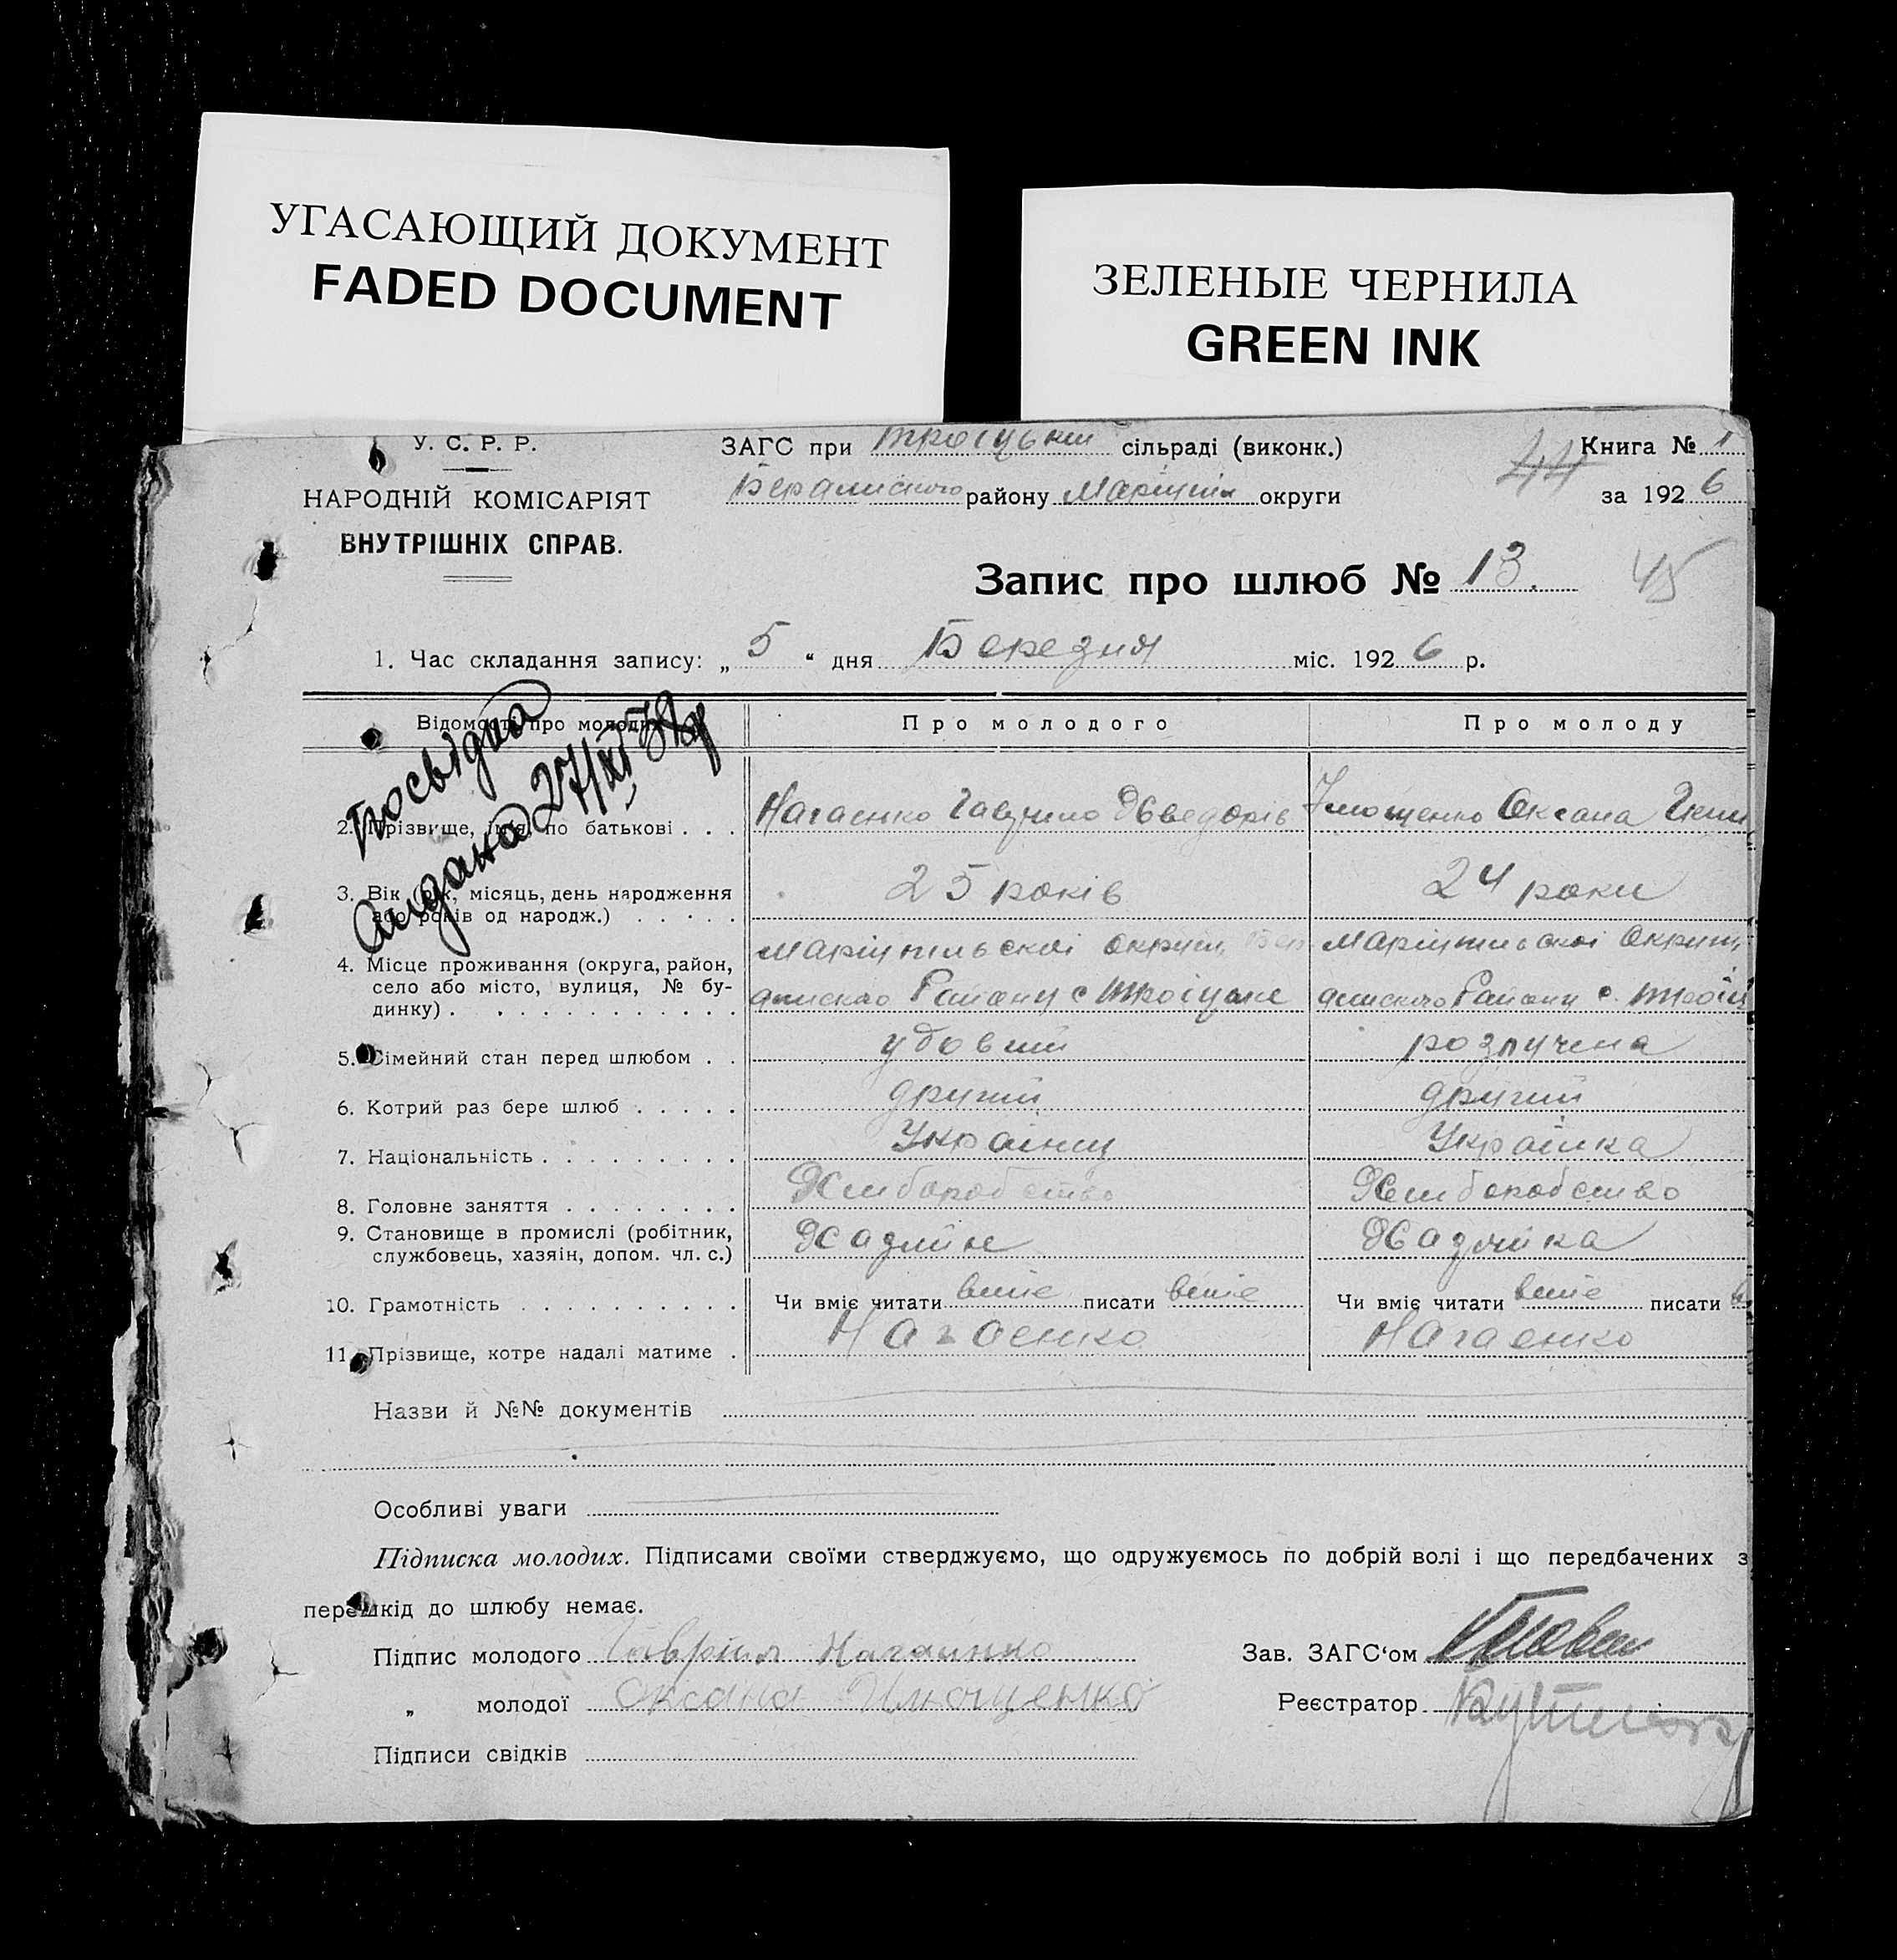 УГАСАЮЩИЙ ДОКУМЕНТ
FADED DOCUMENT
ЗЕЛЕНЫЕ ЧЕРНИЛА
GREEN INK
У. С. Р. Р.
НАРОДНІЙ КОМІСАРІЯТ
ВНУТРІШНІХ СПРАВ.
ЗАГС при сільраді (виконк.)
району округи
Книга № 1
за 1926
44
Запис про шлюб № 13.
45
1. Час складання запису: „ 5 “ дня Березня міс. 1926 р.
Відомості про молодих
Про молодого
Про молоду
Посвідка
видана 27/XI
2. Прізвище, ім'я, по батькові . . .
Нагаенко
Оксана
3. Вік (рік, місяць, день народження
або років од народж.) . . . . .
25 років
24 роки
4. Місце проживання (округа, район,
село або місто, вулиця, № бу-
динку) . . . . . . . . . . . .
Маріупільскоі округи
Району с
Маріупільскоі Округи,
Району с.
5. Сімейний стан перед шлюбом . .
удовий
розлучена
6. Котрий раз бере шлюб . . . . .
другий
другий
7. Національність . . . . . . . . .
Украінец
Украінка
8. Головне заняття . . . . . . . .
Хлиборобство
Хлиборобство
9. Становище в промислі (робітник,
службовець, хазяін, допом. чл. с.)
10. Грамотність . . . . . . . . . .
Чи вміє читати вміє писати вміє
Чи вміє читати вміє писати
11. Прізвище, котре надалі матиме .
Нагаенко
Нагаенко
Назви й №№ документів
Особливі уваги
Підписка молодих. Підписами своїми стверджуємо, що одружуємось по добрій волі і що передбачених з
перешкід до шлюбу немає.
Підпис молодого Гавриіл Нагаинко
„ молодої Оксана
Підписи свідків
Зав. ЗАГС‘ом
Реєстратор